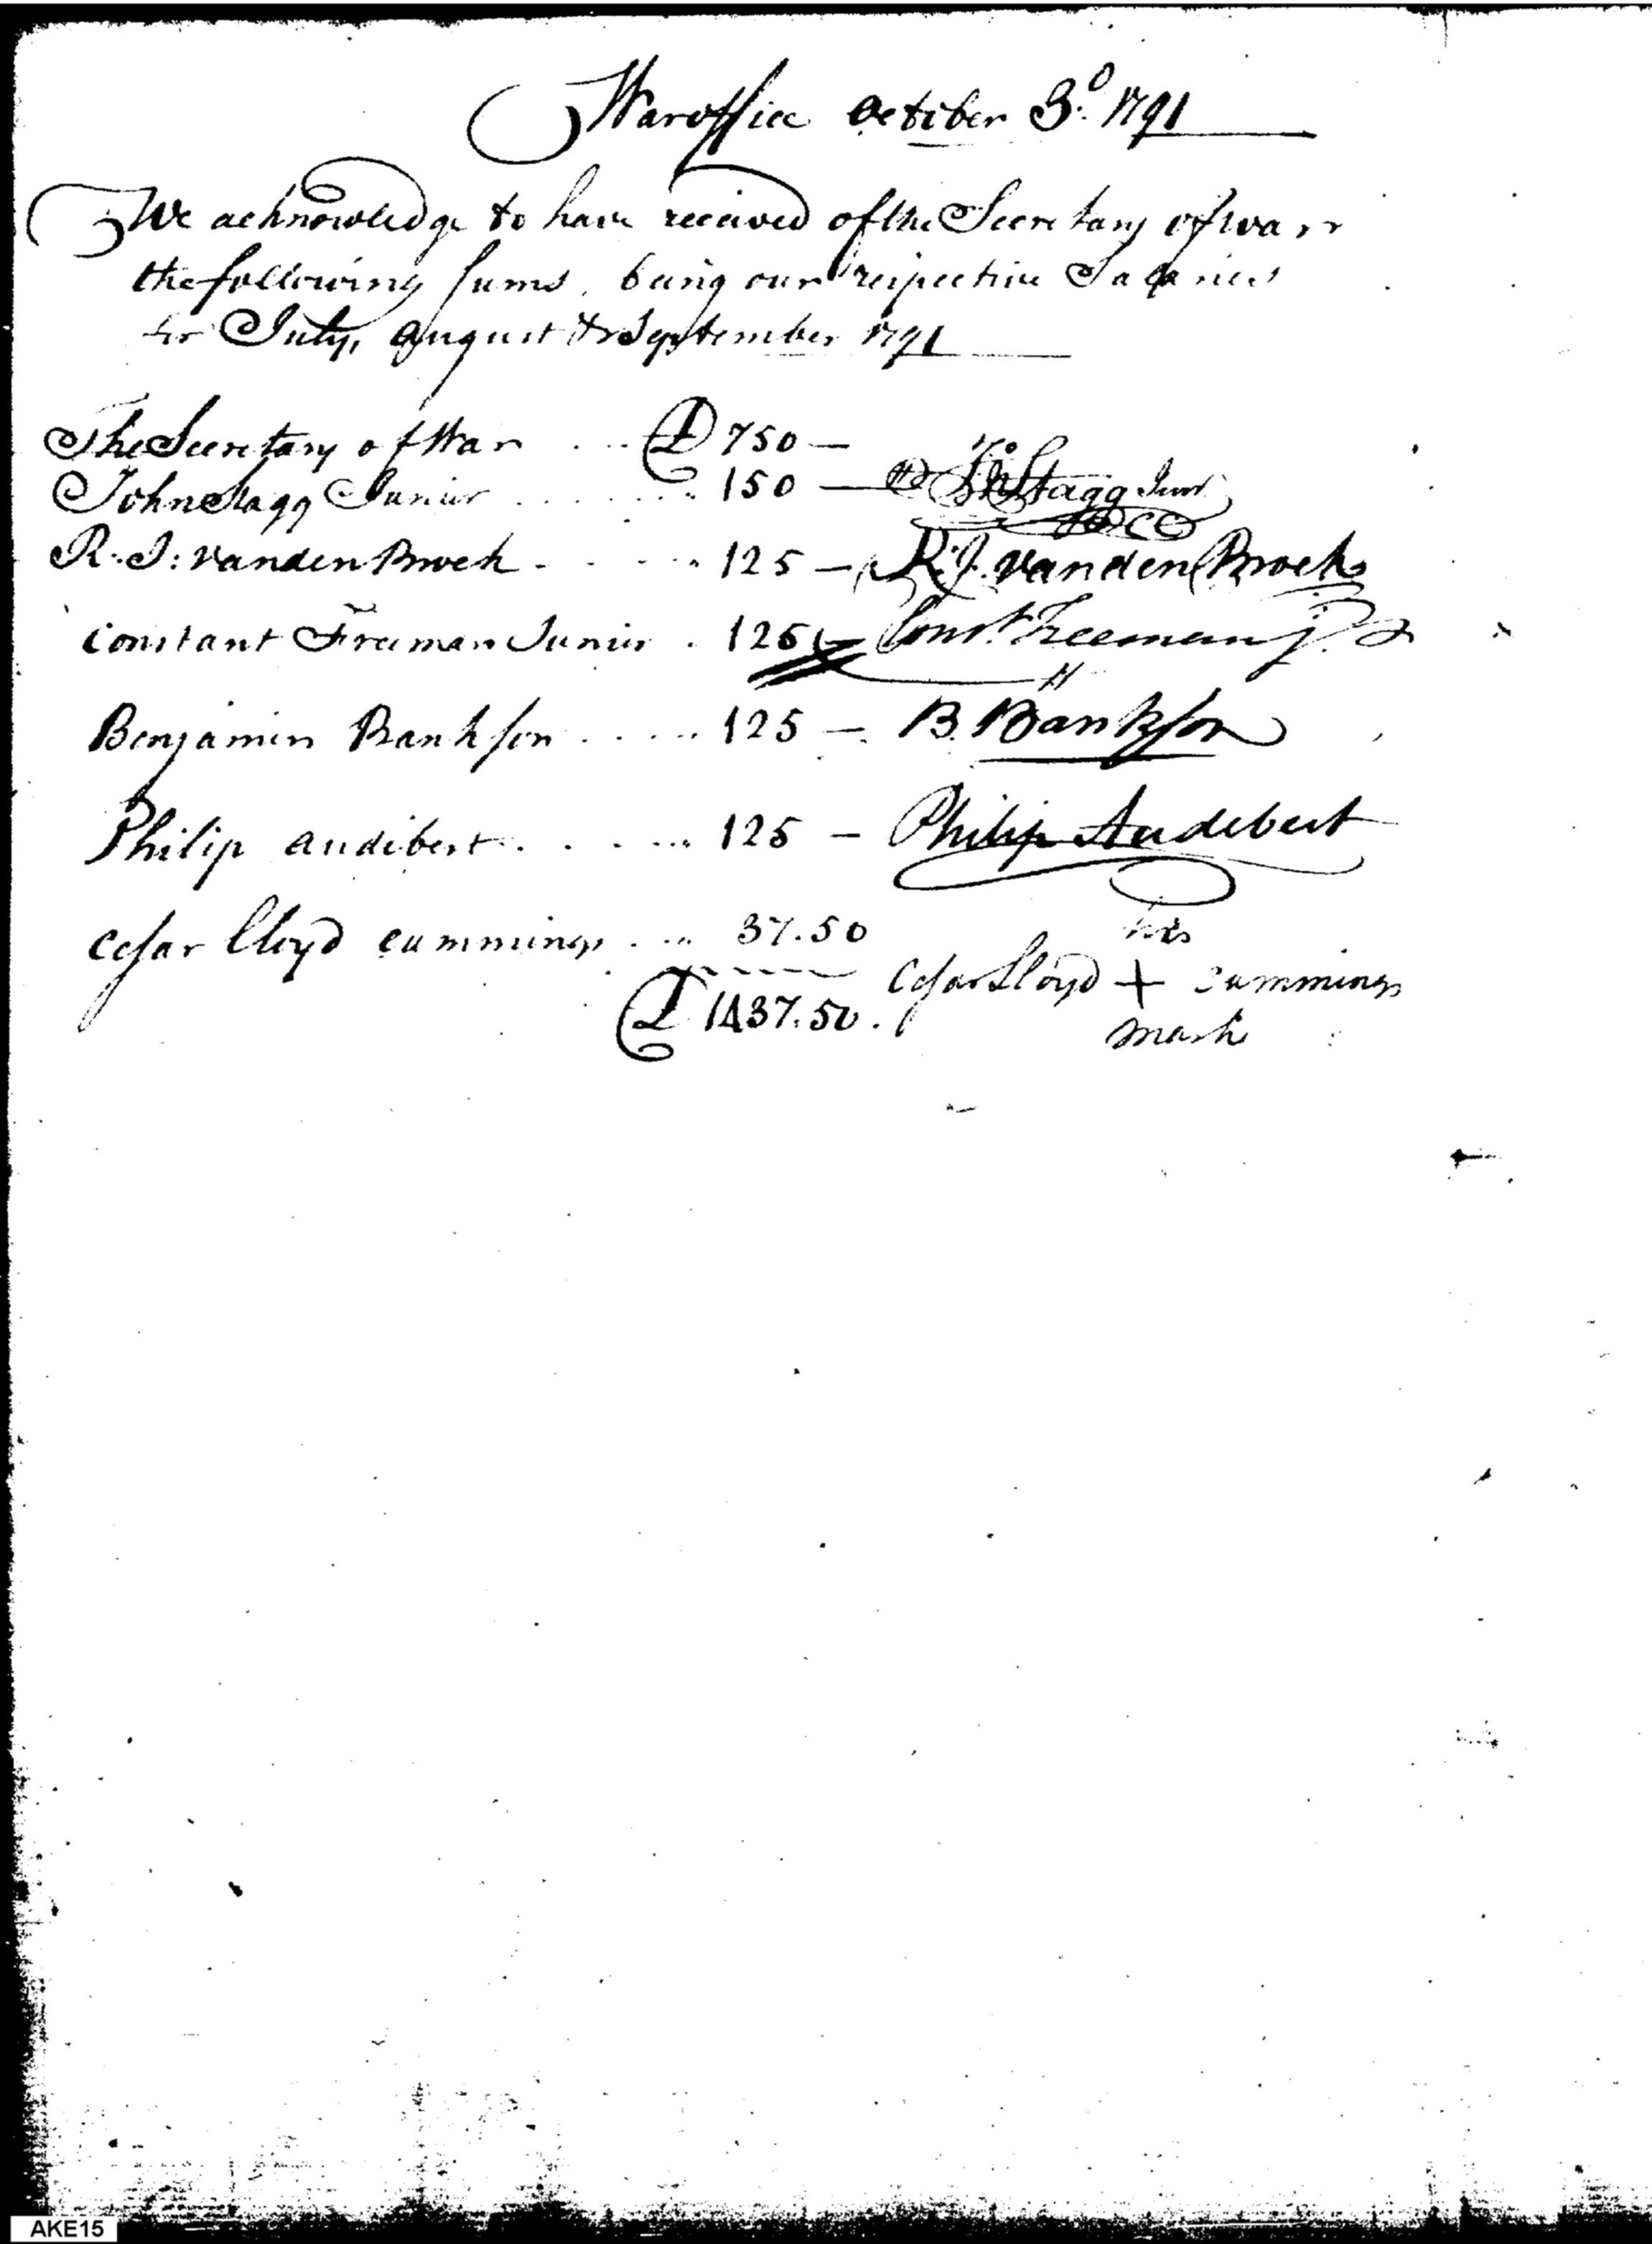 War office October 3.d 1791
We acknowledge to have received of the Secretary of war
the following sums, being our respective Salaries
for July, August & September 1791
The Secretary of War ... D 750 —
John Stagg Junior ....... 150 — Jno Stagg Junr
R. J: Vanden Broek - - - - 125 — R. J. Vanden Broek
Constant Freeman Junior . 125 — Const. Freeman jr.
Benjamin Bankson ..... 125 — B. Bankson
Philip Audibert ...... 125 — Philip Audebert
Cesar Lloyd Cummings .... 37.50
his
Cesar Lloyd + Cummings
D 1437.50.
mark
AKE15